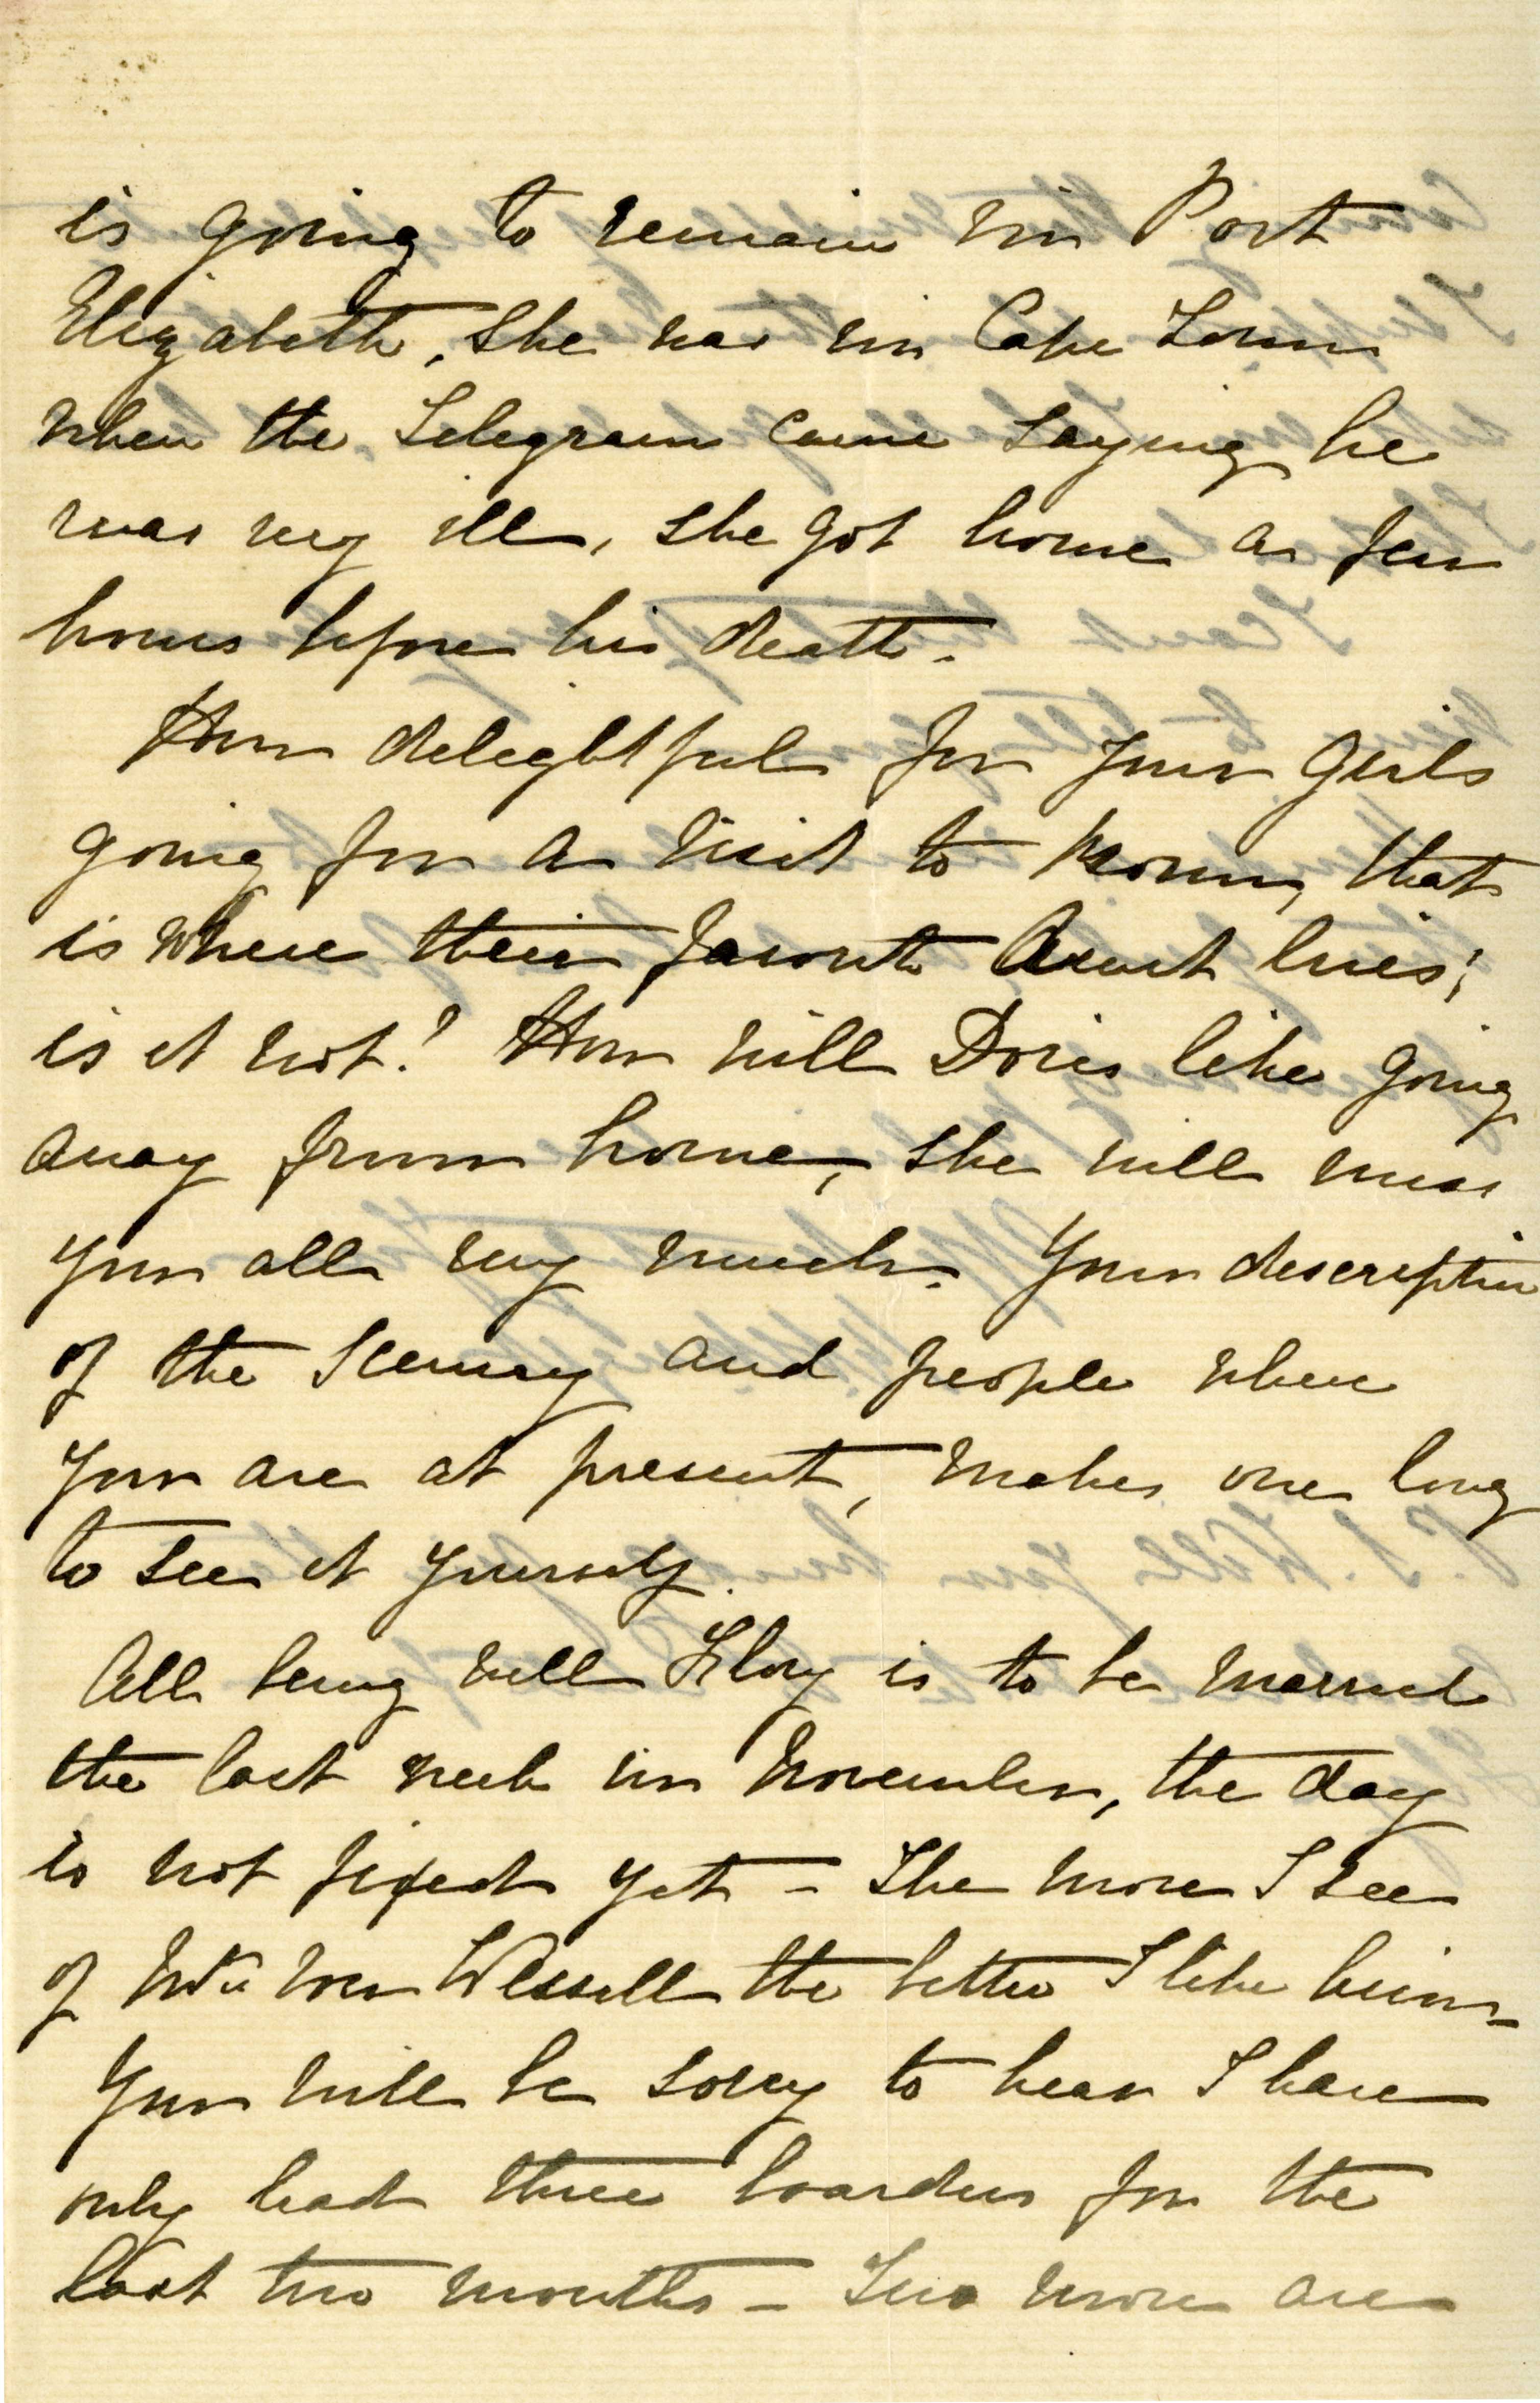 is going to remain in Port
Elizabeth, she was in Cape Town
when the Telegram came saying he
was very ill, she got home a few
hours before his death.
How delightful for your Girls
going for a visit to that
is where their favorite Aunt lives;
is it not? How will Doris like going
away from home, she will miss
you all very much. Your description
of the Scenery and people where
you are at present, makes one long
to see it yourself.
All being well Flory is to be married
the last week in November, the day
is not fixed yet - The more I see
of Mr Wessell the better I like him-
You will be sorry to hear I have
only had three boarders for the
last two months - Two more are